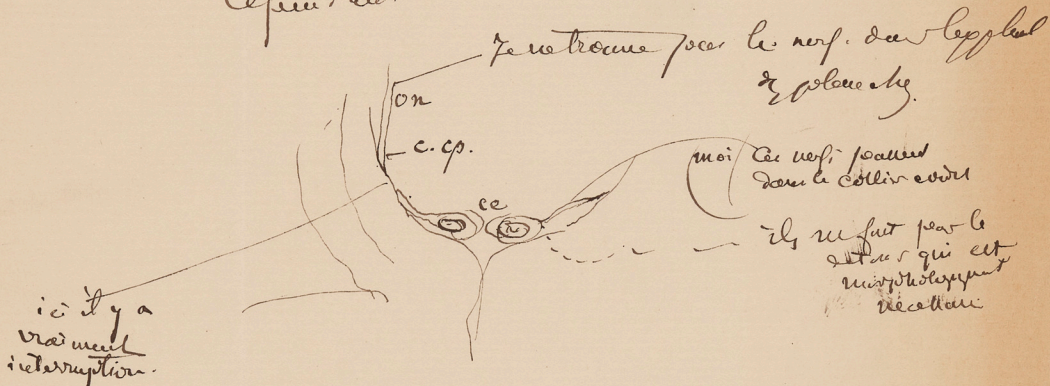 Je ne trouve pas le nerf. dans
de planche.
on
c. cp.
ce
moi ces nerfs passent
dans le collier
ils ne font pas le
détour qui est
morphologiquement
nécessaire
ici il y a
vraiment
interruption.